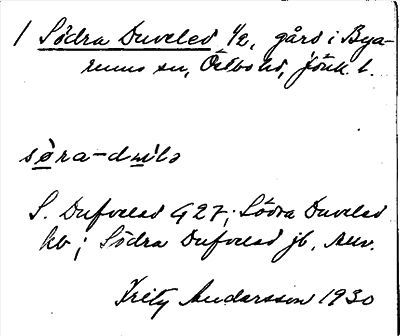 1 Södra Duveled 1/2, gård i Bya-
rums sn, Östbo hd, Jönk. l.
söra-
S. Dufveled G 27; Södra Duveled
kb; Södra Dufveled jb,
Fritz Andersson 1930